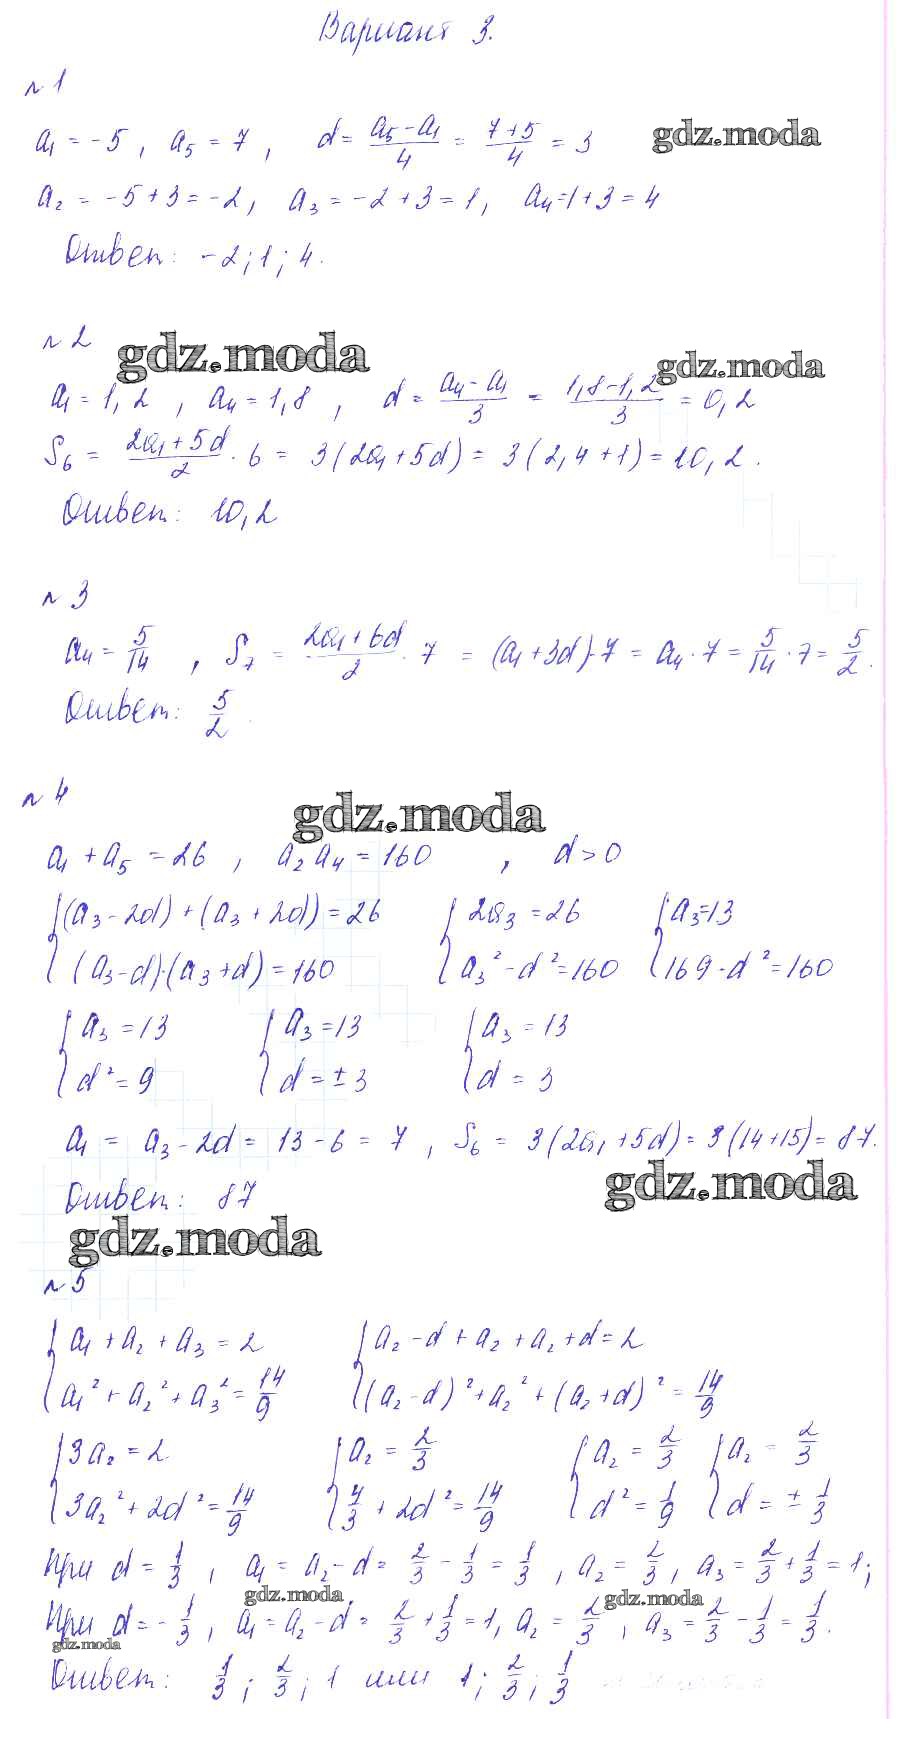 Вариант 3.
№1
a₁ = −5, a₅ = 7, d = (a₅ − a₁)/4 = (7+5)/4 = 3
gdz.moda
a₂ = −5+3 = −2, a₃ = −2+3 = 1, a₄ = 1+3 = 4
Ответ: −2; 1; 4.
№2
gdz.moda
gdz.moda
a₁ = 1,2, a₄ = 1,8, d = (a₄ − a₁)/3 = (1,8−1,2)/3 = 0,2
S₆ = (2a₁ + 5d)/2 · 6 = 3(2a₁ + 5d) = 3(2,4+1) = 10,2.
Ответ: 10,2
№3
a₄ = 5/14, S₇ = (2a₁ + 6d)/2 · 7 = (a₁ + 3d)·7 = a₄ · 7 = 5/14 · 7 = 5/2.
Ответ: 5/2.
№4
gdz.moda
a₁ + a₅ = 26, a₂a₄ = 160, d > 0
{(a₃ − 2d) + (a₃ + 2d) = 26 {2a₃ = 26 {a₃ = 13
{(a₃ − d)·(a₃ + d) = 160 {a₃² − d² = 160 {169 − d² = 160
{a₃ = 13 {a₃ = 13 {a₃ = 13
{d² = 9 {d = ±3 {d = 3
a₁ = a₃ − 2d = 13 − 6 = 7, S₆ = 3(2a₁ + 5d) = 3(14+15) = 87.
Ответ: 87
gdz.moda
gdz.moda
№5
{a₁ + a₂ + a₃ = 2 {a₂ − d + a₂ + a₂ + d = 2
{a₁² + a₂² + a₃² = 14/9 {(a₂ − d)² + a₂² + (a₂ + d)² = 14/9
{3a₂ = 2 {a₂ = 2/3 {a₂ = 2/3 {a₂ = 2/3
{3a₂² + 2d² = 14/9 {4/3 + 2d² = 14/9 {d² = 1/9 {d = ± 1/3
При d = 1/3, a₁ = a₂ − d = 2/3 − 1/3 = 1/3, a₂ = 2/3, a₃ = 2/3 + 1/3 = 1;
gdz.moda
gdz.moda
При d = −1/3, a₁ = a₂ − d = 2/3 + 1/3 = 1, a₂ = 2/3, a₃ = 2/3 − 1/3 = 1/3.
gdz.moda
Ответ: 1/3; 2/3; 1 или 1; 2/3; 1/3